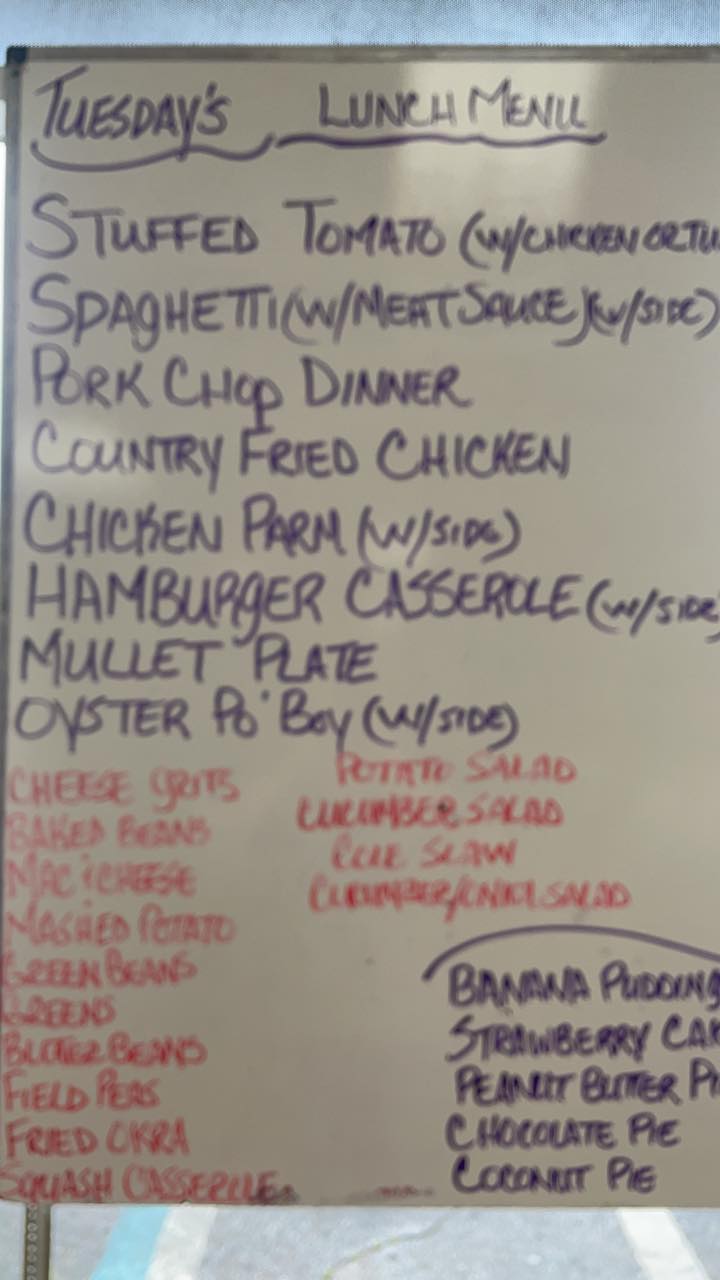 TUESDAY'S LUNCH MENU
STUFFED TOMATO (W/CHICKEN OR TU
SPAGHETTI (W/MEAT SAUCE) (W/SIDE)
PORK CHOP DINNER
COUNTRY FRIED CHICKEN
CHICKEN PARM (W/SIDE)
HAMBURGER CASSEROLE (W/SIDE
MULLET PLATE
OYSTER PO' BOY (W/SIDE)
CHEESE GRITS
BAKED BEANS
MAC & CHEESE
MASHED POTATO
GREEN BEANS
GREENS
BEANS
FIELD PEAS
FRIED OKRA
SQUASH CASSEROLE
POTATO SALAD
CUCUMBER SALAD
COLE SLAW
CUCUMBER/ SALAD
BANANA PUDDING
STRAWBERRY CAK
PEANUT BUTTER PI
CHOCOLATE PIE
COCONUT PIE